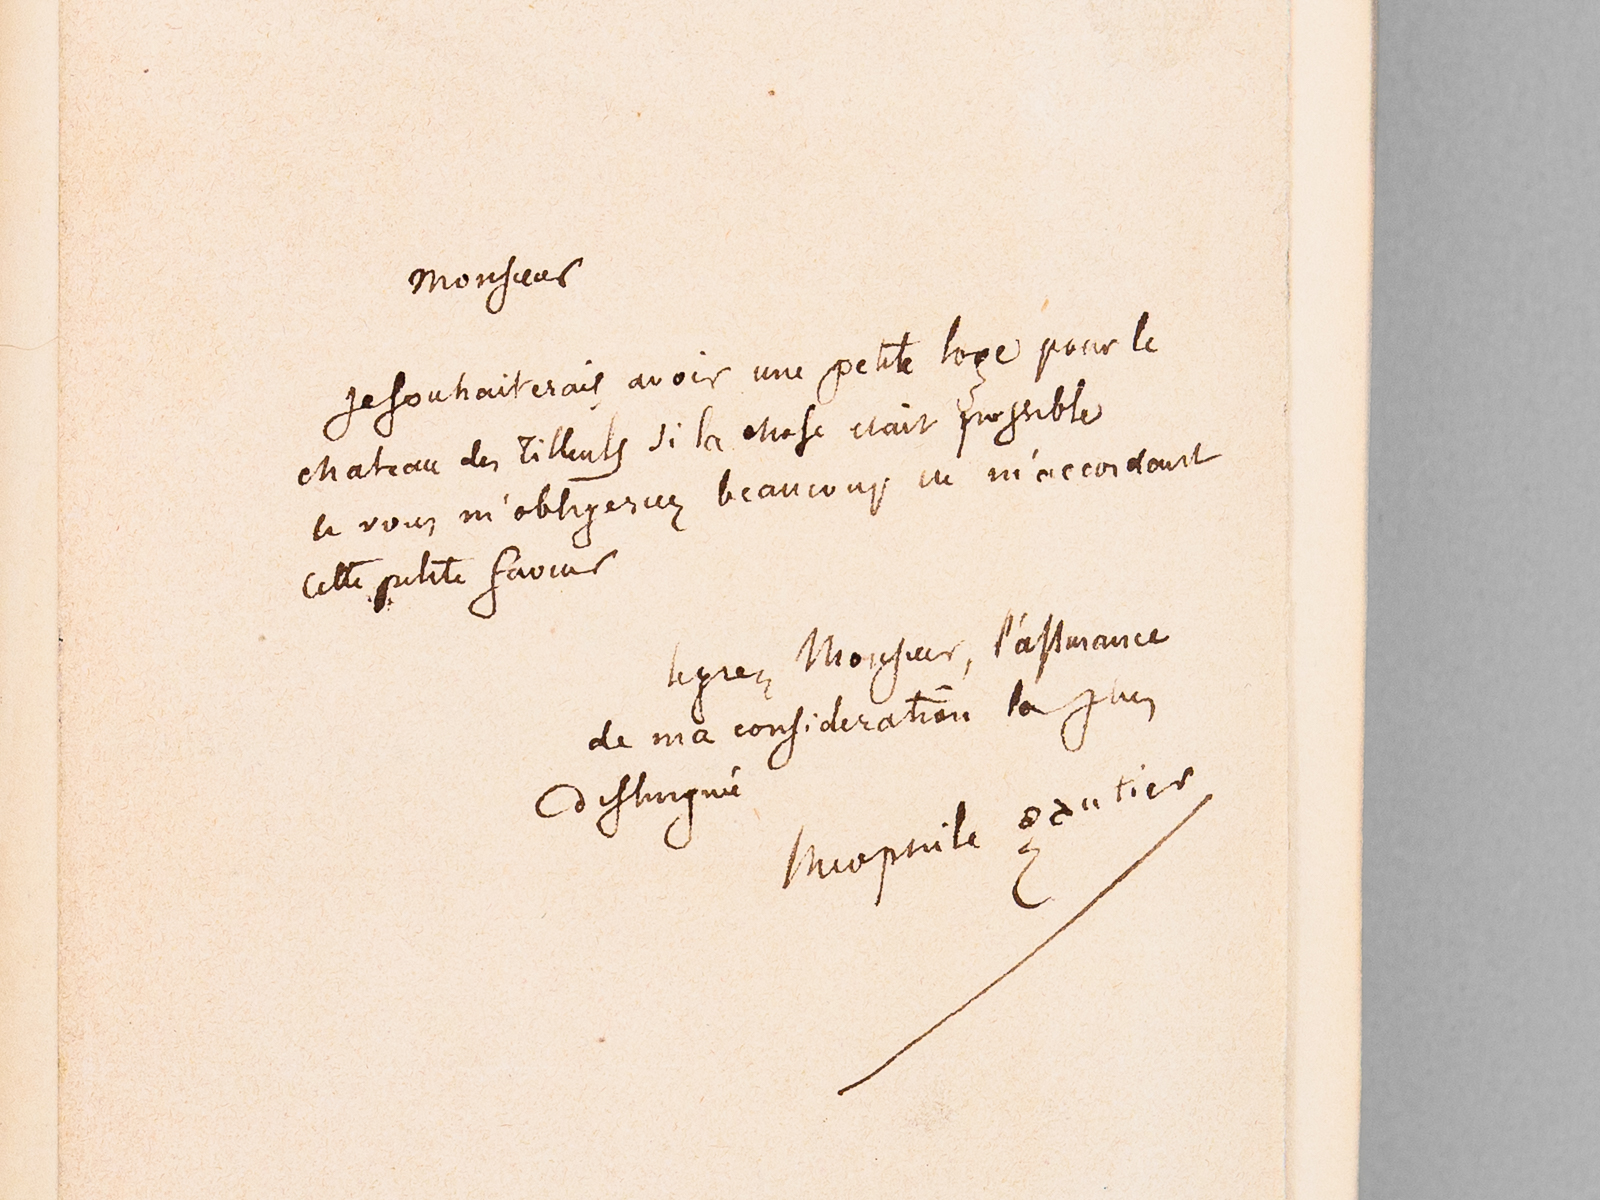 Monsieur
Je souhaiterais avoir une petite loge pour le
chateau des Tilleuls si la chose etait possible
et vous m'obligeriez beaucoup en m'accordant
cette petite faveur
agreez Monsieur, l'assurance
de ma consideration la plus
distinguée
theophile gautier